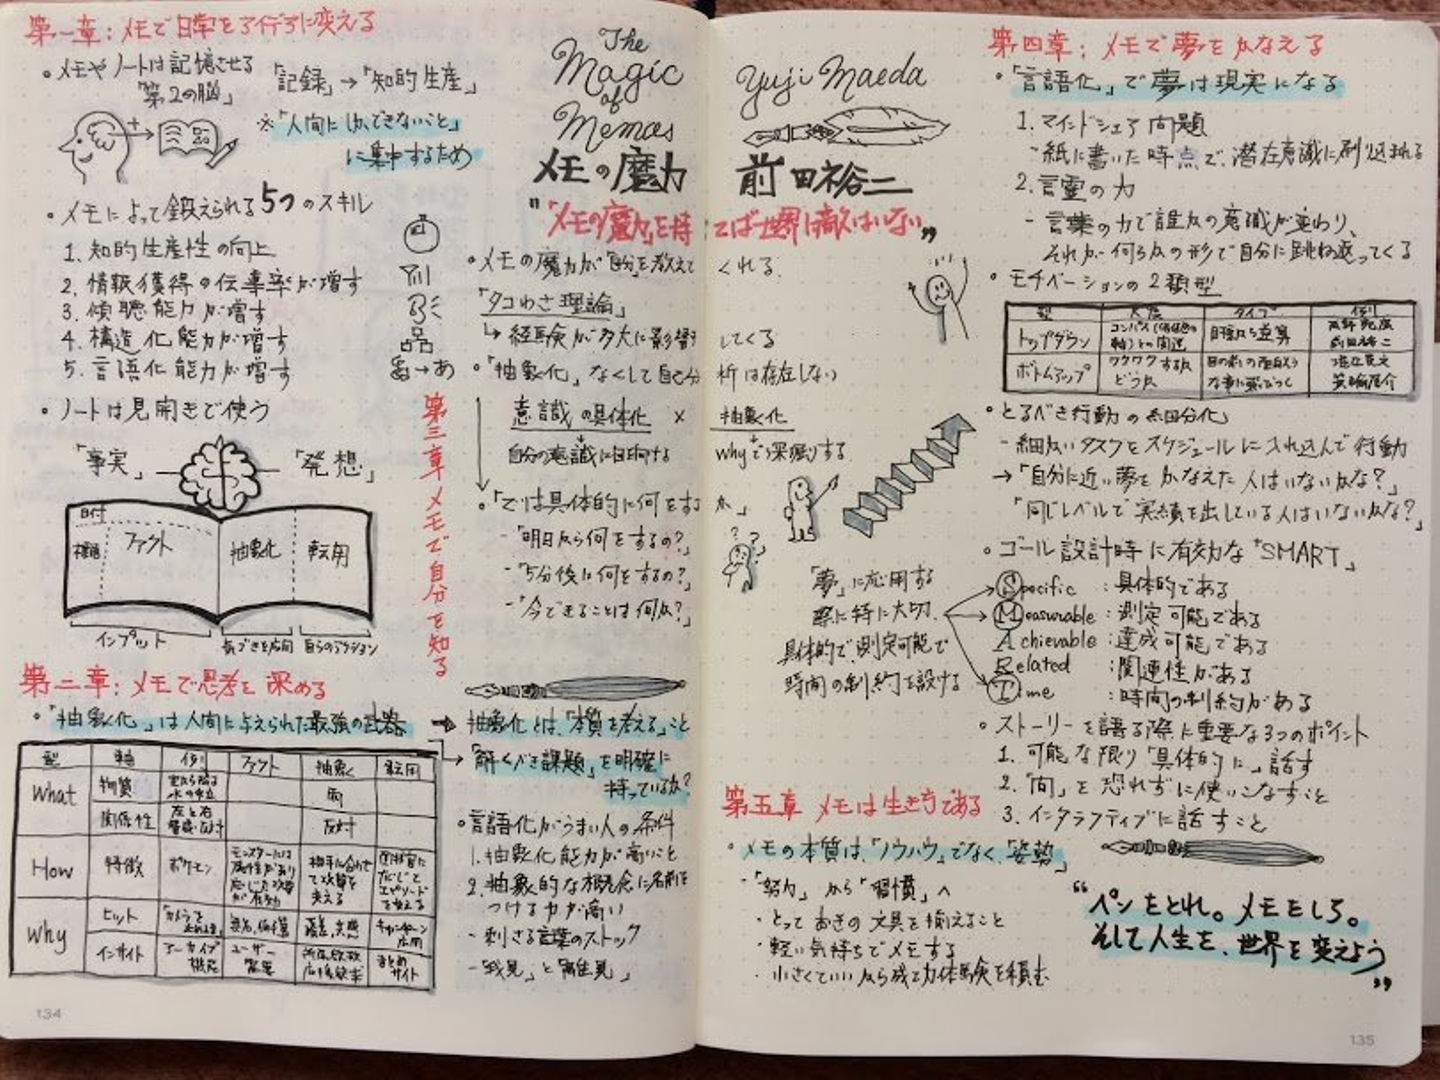 第一章：メモで日常をアイデアに変える
・メモやノートは記憶させる
「第2の脳」
「記録」→「知的生産」
※「人間にしかできないこと」
に集中するため
・メモによって鍛えられる5つのスキル
1. 知的生産性の向上
2. 情報獲得の伝導率が増す
3. 傾聴能力が増す
4. 構造化能力が増す
5. 言語化能力が増す
・ノートは見開きで使う
「事実」
「発想」
日付
標題
ファクト
抽象化
転用
インプット
気づきを応用
自らのアクション
第二章：メモで思考を深める
・「抽象化」は人間に与えられた最強の武器
型 軸 例 ファクト 抽象 転用
What
物質
関係性 左と右 反対
How
特徴 ポケモン
Why
ヒット
インサイト アーカイブ機能 ユーザー まとめサイト
134
The
Magic
of
Memos
メモの魔力
Yuji Maeda
前田裕二
"「メモの魔力」を持てば世界に敵はいない"
第三章 メモで自分を知る
・メモの魔力が「自分」を教えてくれる
「タコわさ理論」
↳ 経験が多大に影響してくる
・「抽象化」なくして自己分析は存在しない
意識の具体化 × 抽象化
自分の意識に目向ける
whyで深掘りする
・「では具体的に何をするか」
-「明日から何をするの？」
-「5分後に何をするの？」
-「今できることは何か？」
「夢」に応用する
際に特に大切、
具体的で、測定可能で
時間の制約を設ける
→ 抽象化とは、「本質を考える」こと
→「解くべき課題」を明確に
持っているか？
・言語化がうまい人の条件
1. 抽象化能力が高いこと
2. 抽象的な概念に名前を
つける力が高い
- 刺さる言葉のストック
-「我見」と「離見」
第四章：メモで夢をかなえる
・「言語化」で夢は現実になる
1. マインドシェア問題
紙に書いた時点で、潜在意識に刷り込まれる
2. 言霊の力
- 言葉の力で誰かの意識が変わり、
それが何らかの形で自分に跳ね返ってくる
・モチベーションの2類型
型 タイプ 例
トップダウン 目標から逆算 前田裕二
ボトムアップ ワクワクするかどうか
・とるべき行動の細分化
- 細かいタスクをスケジュールに入れ込んで行動
→「自分に近い夢をかなえた人はいないかな？」
「同じレベルで実績を出している人はいないかな？」
・ゴール設計時に有効な"SMART」
Specific：具体的である
Measurable：測定可能である
Achievable：達成可能である
Related：関連性がある
Time：時間の制約がある
・ストーリーを語る際に重要な3つのポイント
1. 可能な限り「具体的に」話す
2. 「間」を恐れずに使いこなすこと
3. インタラクティブに話すこと
第五章 メモは生き方である
・メモの本質は、「ノウハウ」でなく、「姿勢」
-「努力」から「習慣」へ
・とっておきの文具を揃えること
・軽い気持ちでメモする
・小さくていいから成功体験を積む
"ペンをとれ。メモをしろ。
そして人生を、世界を変えよう"
135